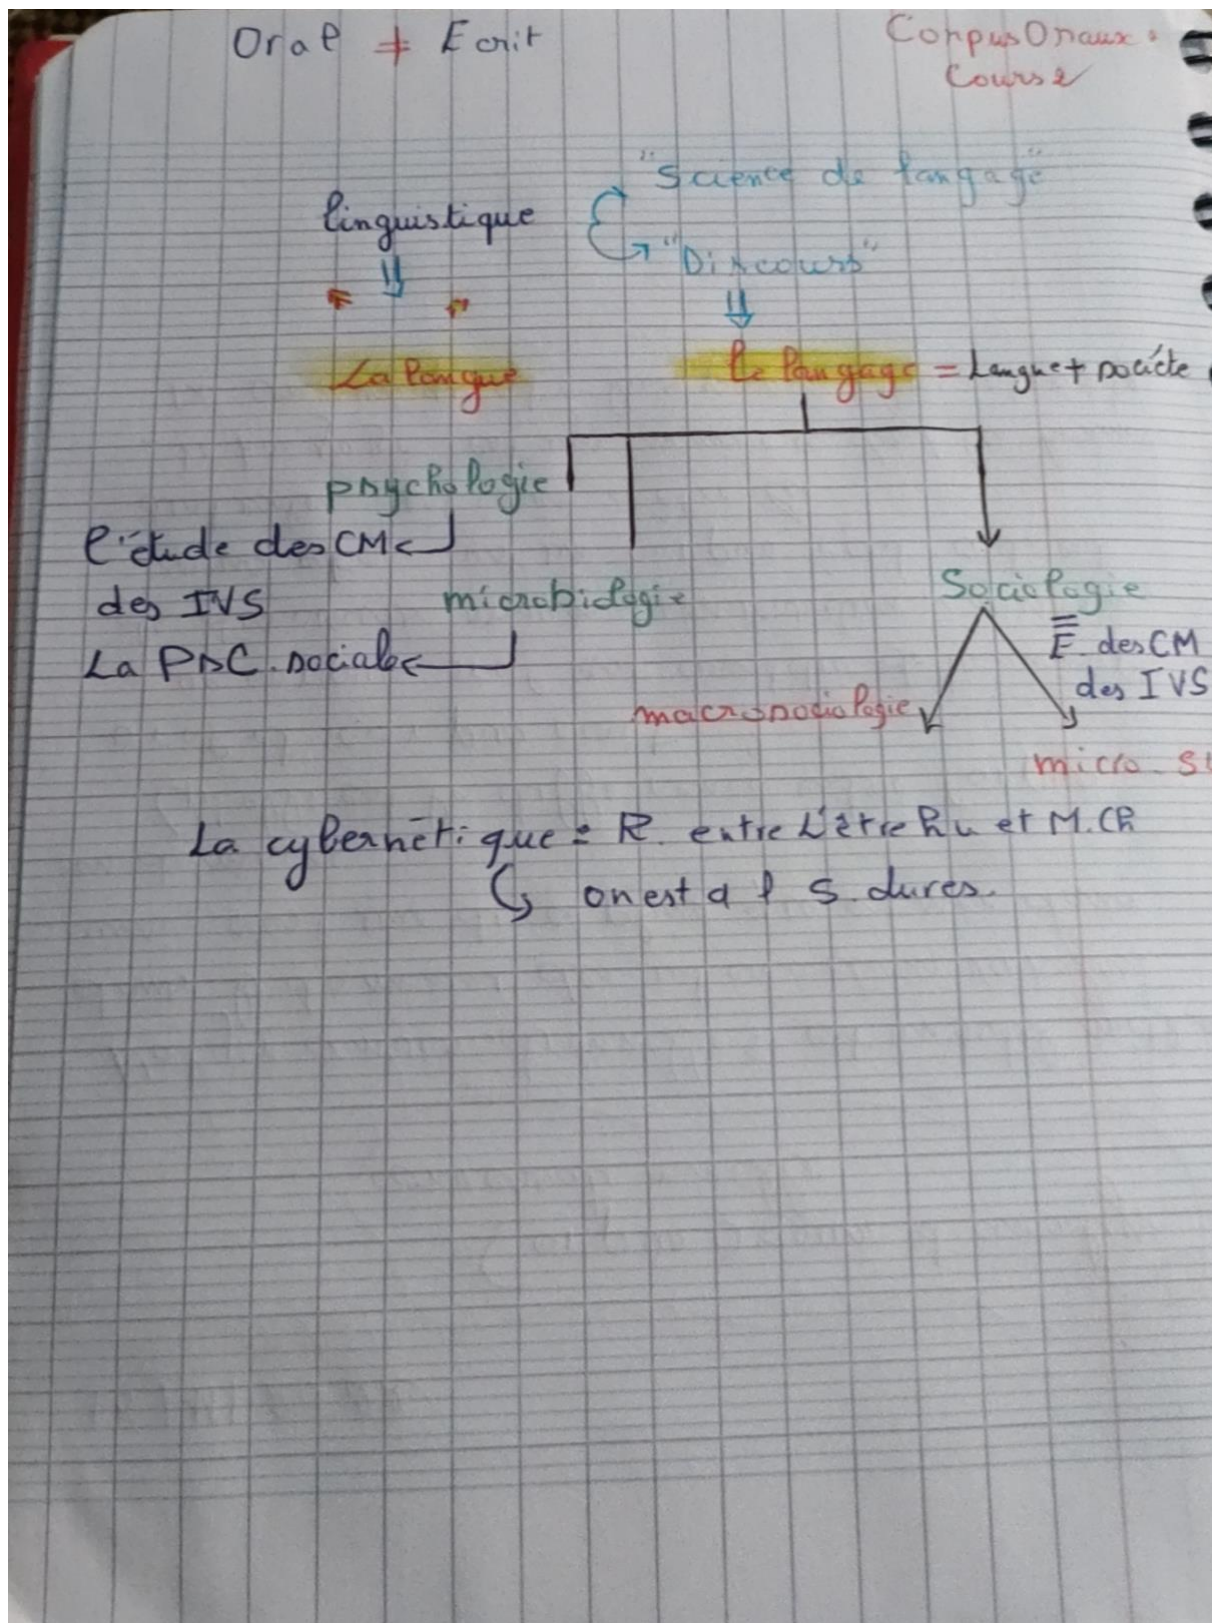 Oral ≠ Ecrit
Corpus Oraux.
Cours 2
"Science de langage"
linguistique
"Discours"
La langue
le langage = Langue + société
psychologie
l'étude des CM
des IVS
microbiologie
La PSC. sociale
Sociologie
E. des CM
des IVS
macrosociologie
micro
La cybernétique = R. entre L'être hu et M.Ch
on est d l S. dures.